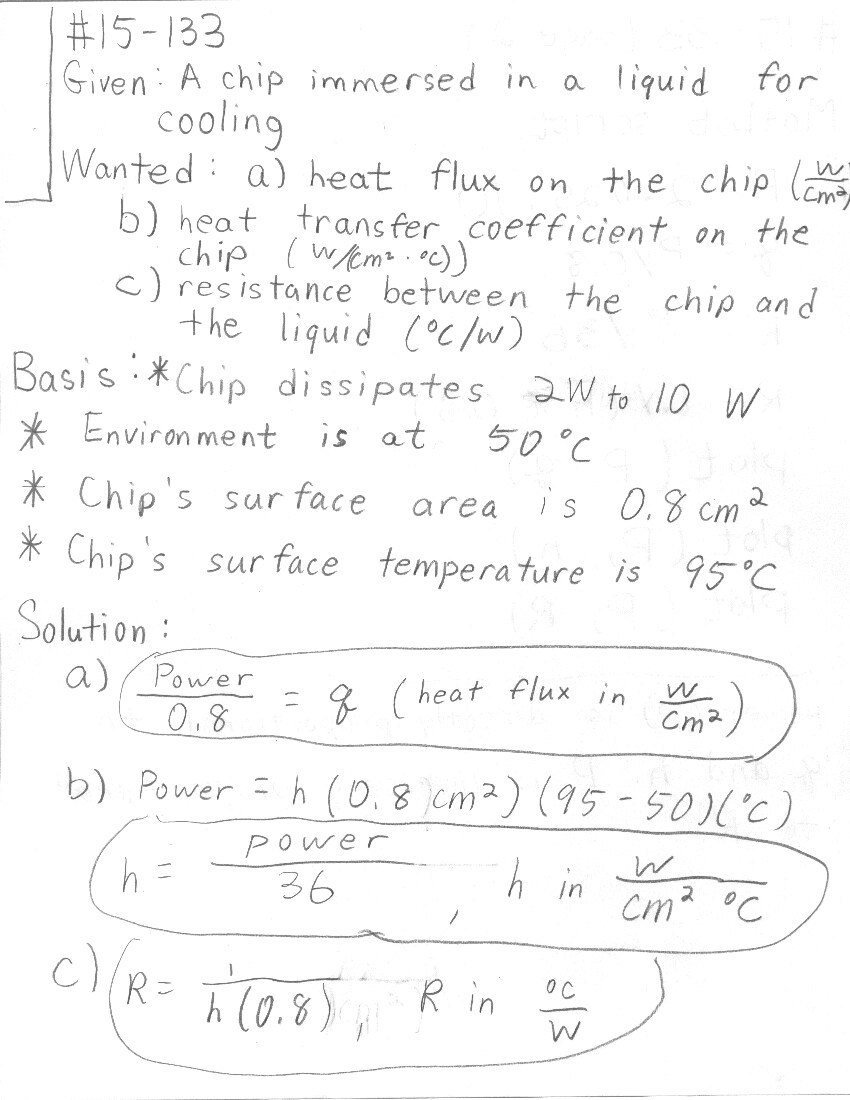 #15-133
Given: A chip immersed in a liquid for
cooling
Wanted: a) heat flux on the chip (W/cm²)
b) heat transfer coefficient on the
chip (W/(cm² · °C))
c) resistance between the chip and
the liquid (°C/W)
Basis: * Chip dissipates 2W to 10 W
* Environment is at 50°C
* Chip's surface area is 0.8 cm²
* Chip's surface temperature is 95°C
Solution:
a) Power/0.8 = q (heat flux in W/cm²)
b) Power = h (0.8)cm²) (95-50)(°C)
h = power/36 , h in W/cm² °C
c) R = 1/h(0.8) , R in °C/W